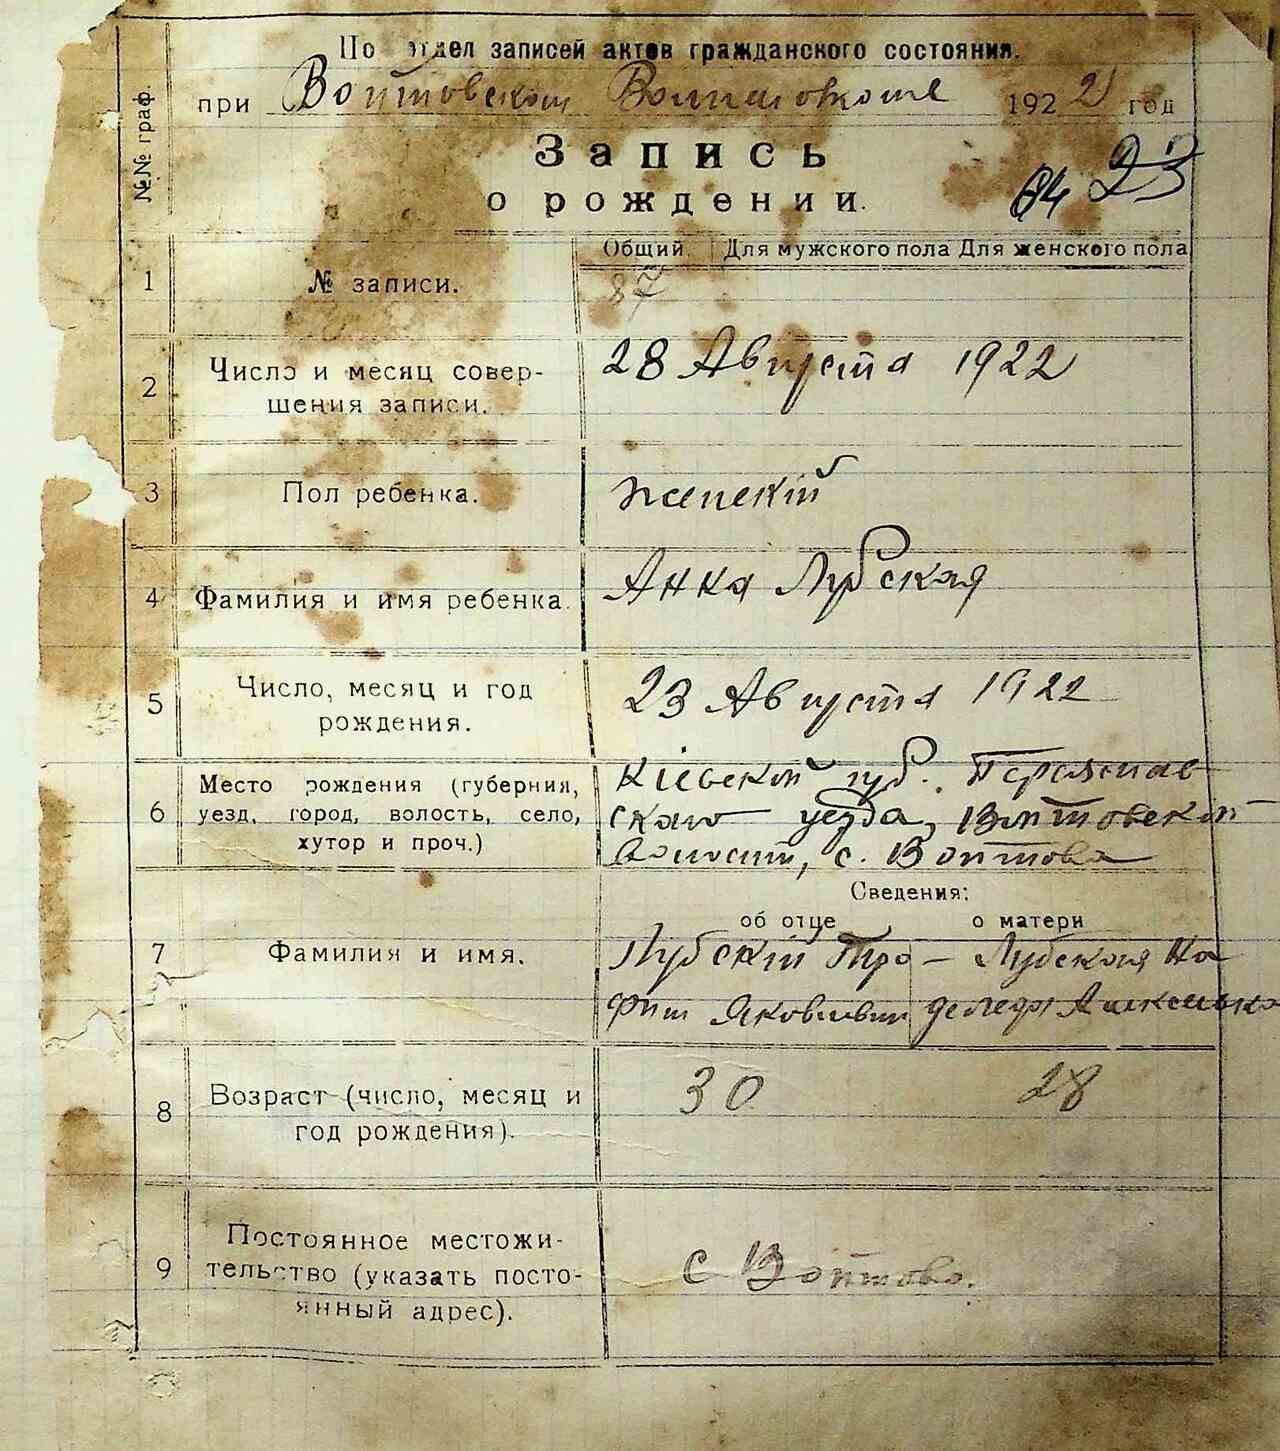 По отдел записей актов гражданского состояния.
при Войтовском Волисполкоме 1922 год
№№ граф.
Запись
о рождении.
84 23
Общий. Для мужского пола Для женского пола
1 № записи. 87
2 Число и месяц совер-
шения записи.
28 Августа 1922
3 Пол ребенка. женскій
4 Фамилия и имя ребенка. Анна Лубская
5 Число, месяц и год
рождения.
23 Августа 1922
6 Место рождения (губерния,
уезд, город, волость, село,
хутор и проч.)
Кіевской губ. Переяслав
скаго уезда, Войтовской
волости, с. Войтова
Сведения:
об отце о матери
7 Фамилия и имя.
Лубскій Тро- Лубская На
фим Яковлевич
8 Возраст (число, месяц и
год рождения).
30 28
9 Постоянное местожи-
тельство (указать посто-
янный адрес).
с Войтово.